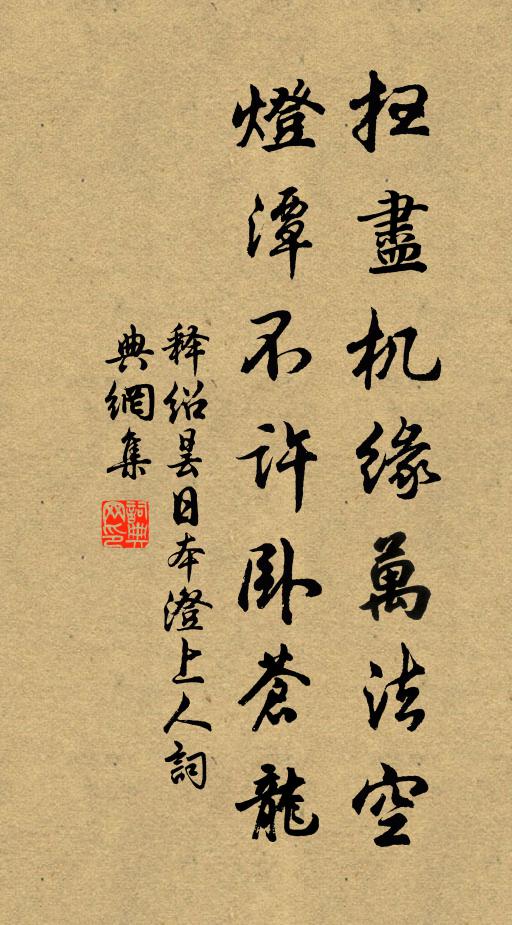 扫盡机緣萬法空
燈潭不许卧蒼龍
释绍昙日本澄上人詞
典網集
詞典
网印